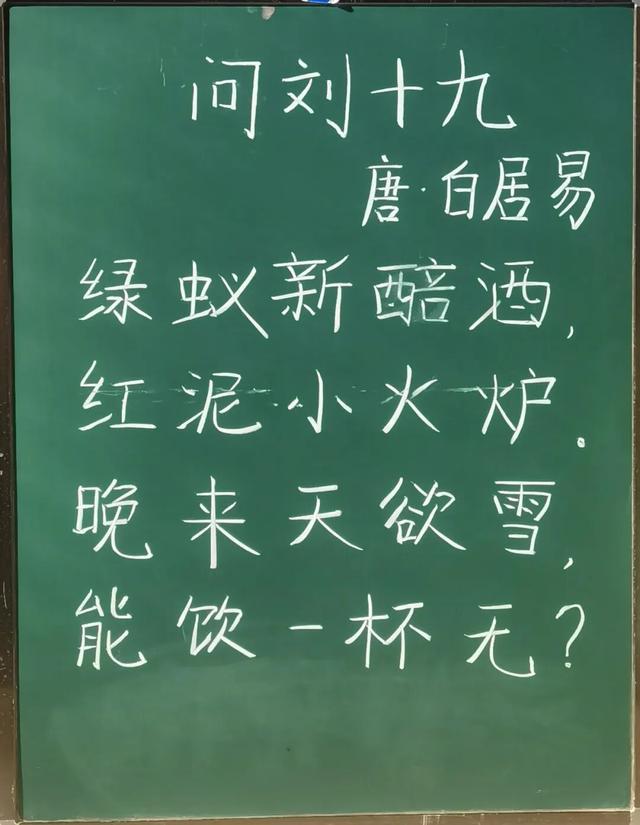 问刘十九
唐·白居易
绿蚁新醅酒,
红泥小火炉.
晚来天欲雪,
能饮一杯无?